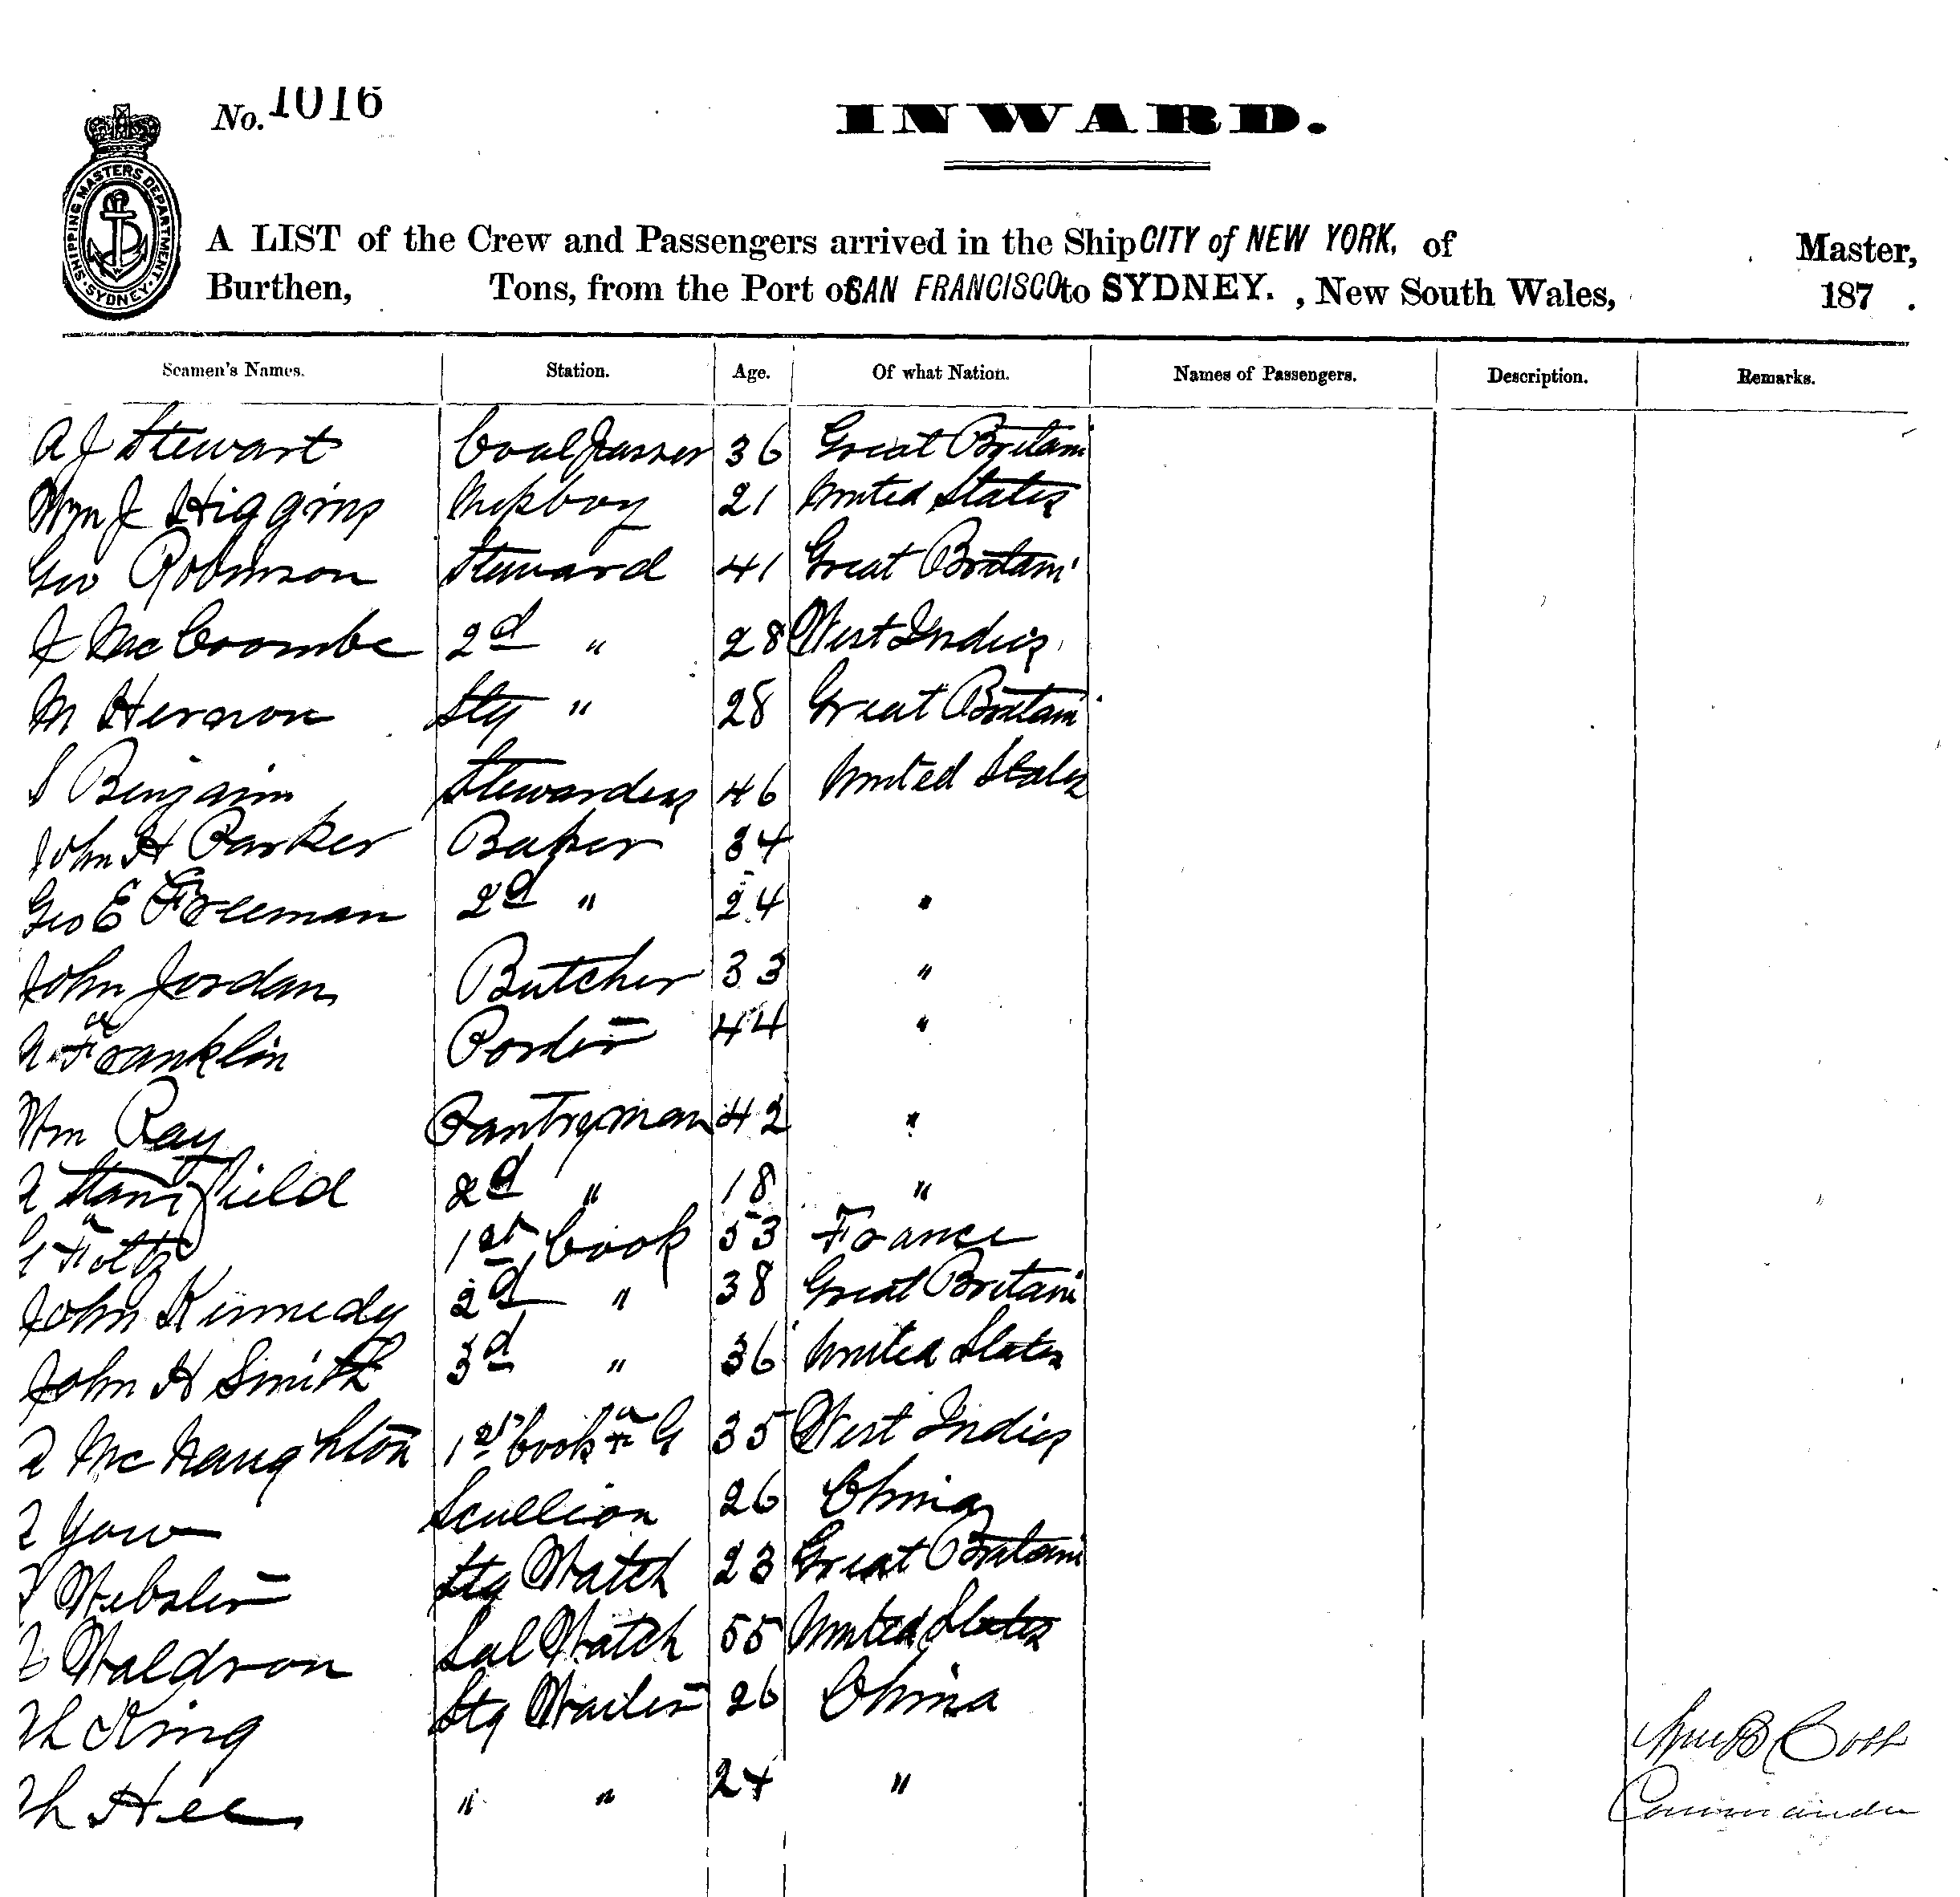 No. 1016
INWARD.
SHIPPING MASTERS DEPARTMENT SYDNEY
A LIST of the Crew and Passengers arrived in the Ship CITY of NEW YORK, of Master,
Burthen, Tons, from the Port of SAN FRANCISCO to SYDNEY. , New South Wales, 187 .
Seamen's Names. Station. Age. Of what Nation. Names of Passengers. Description. Remarks.
A J Stewart Coal Passer 36 Great Britain
Wm J Higgins Messboy 21 United States
Geo Robinson Steward 41 Great Britain
J McCoombe 2d " 28 West Indies
M Hernon Stg " 28 Great Britain
S Benjamin Stewardess 46 United States
John H Parker Baker 34
Geo E Freeman 2d " 24 "
John Jordan Butcher 33 "
A Franklin Porter 44 "
Wm Ray Pantryman 42 "
A Stansfield 2d " 18 "
Foltz 1st Cook 53 France
John Kennedy 2d " 38 Great Britain
John H Smith 3d " 36 United States
McNaughton 1st Cook F G 35 West Indies
Yow Scullion 26 China
Webster Stg Watch 23 Great Britain
Waldron Sal Watch 55 United States
Ah King Stg Waiter 26 China
Ah Hee " " 24 "
Cobb
Commander